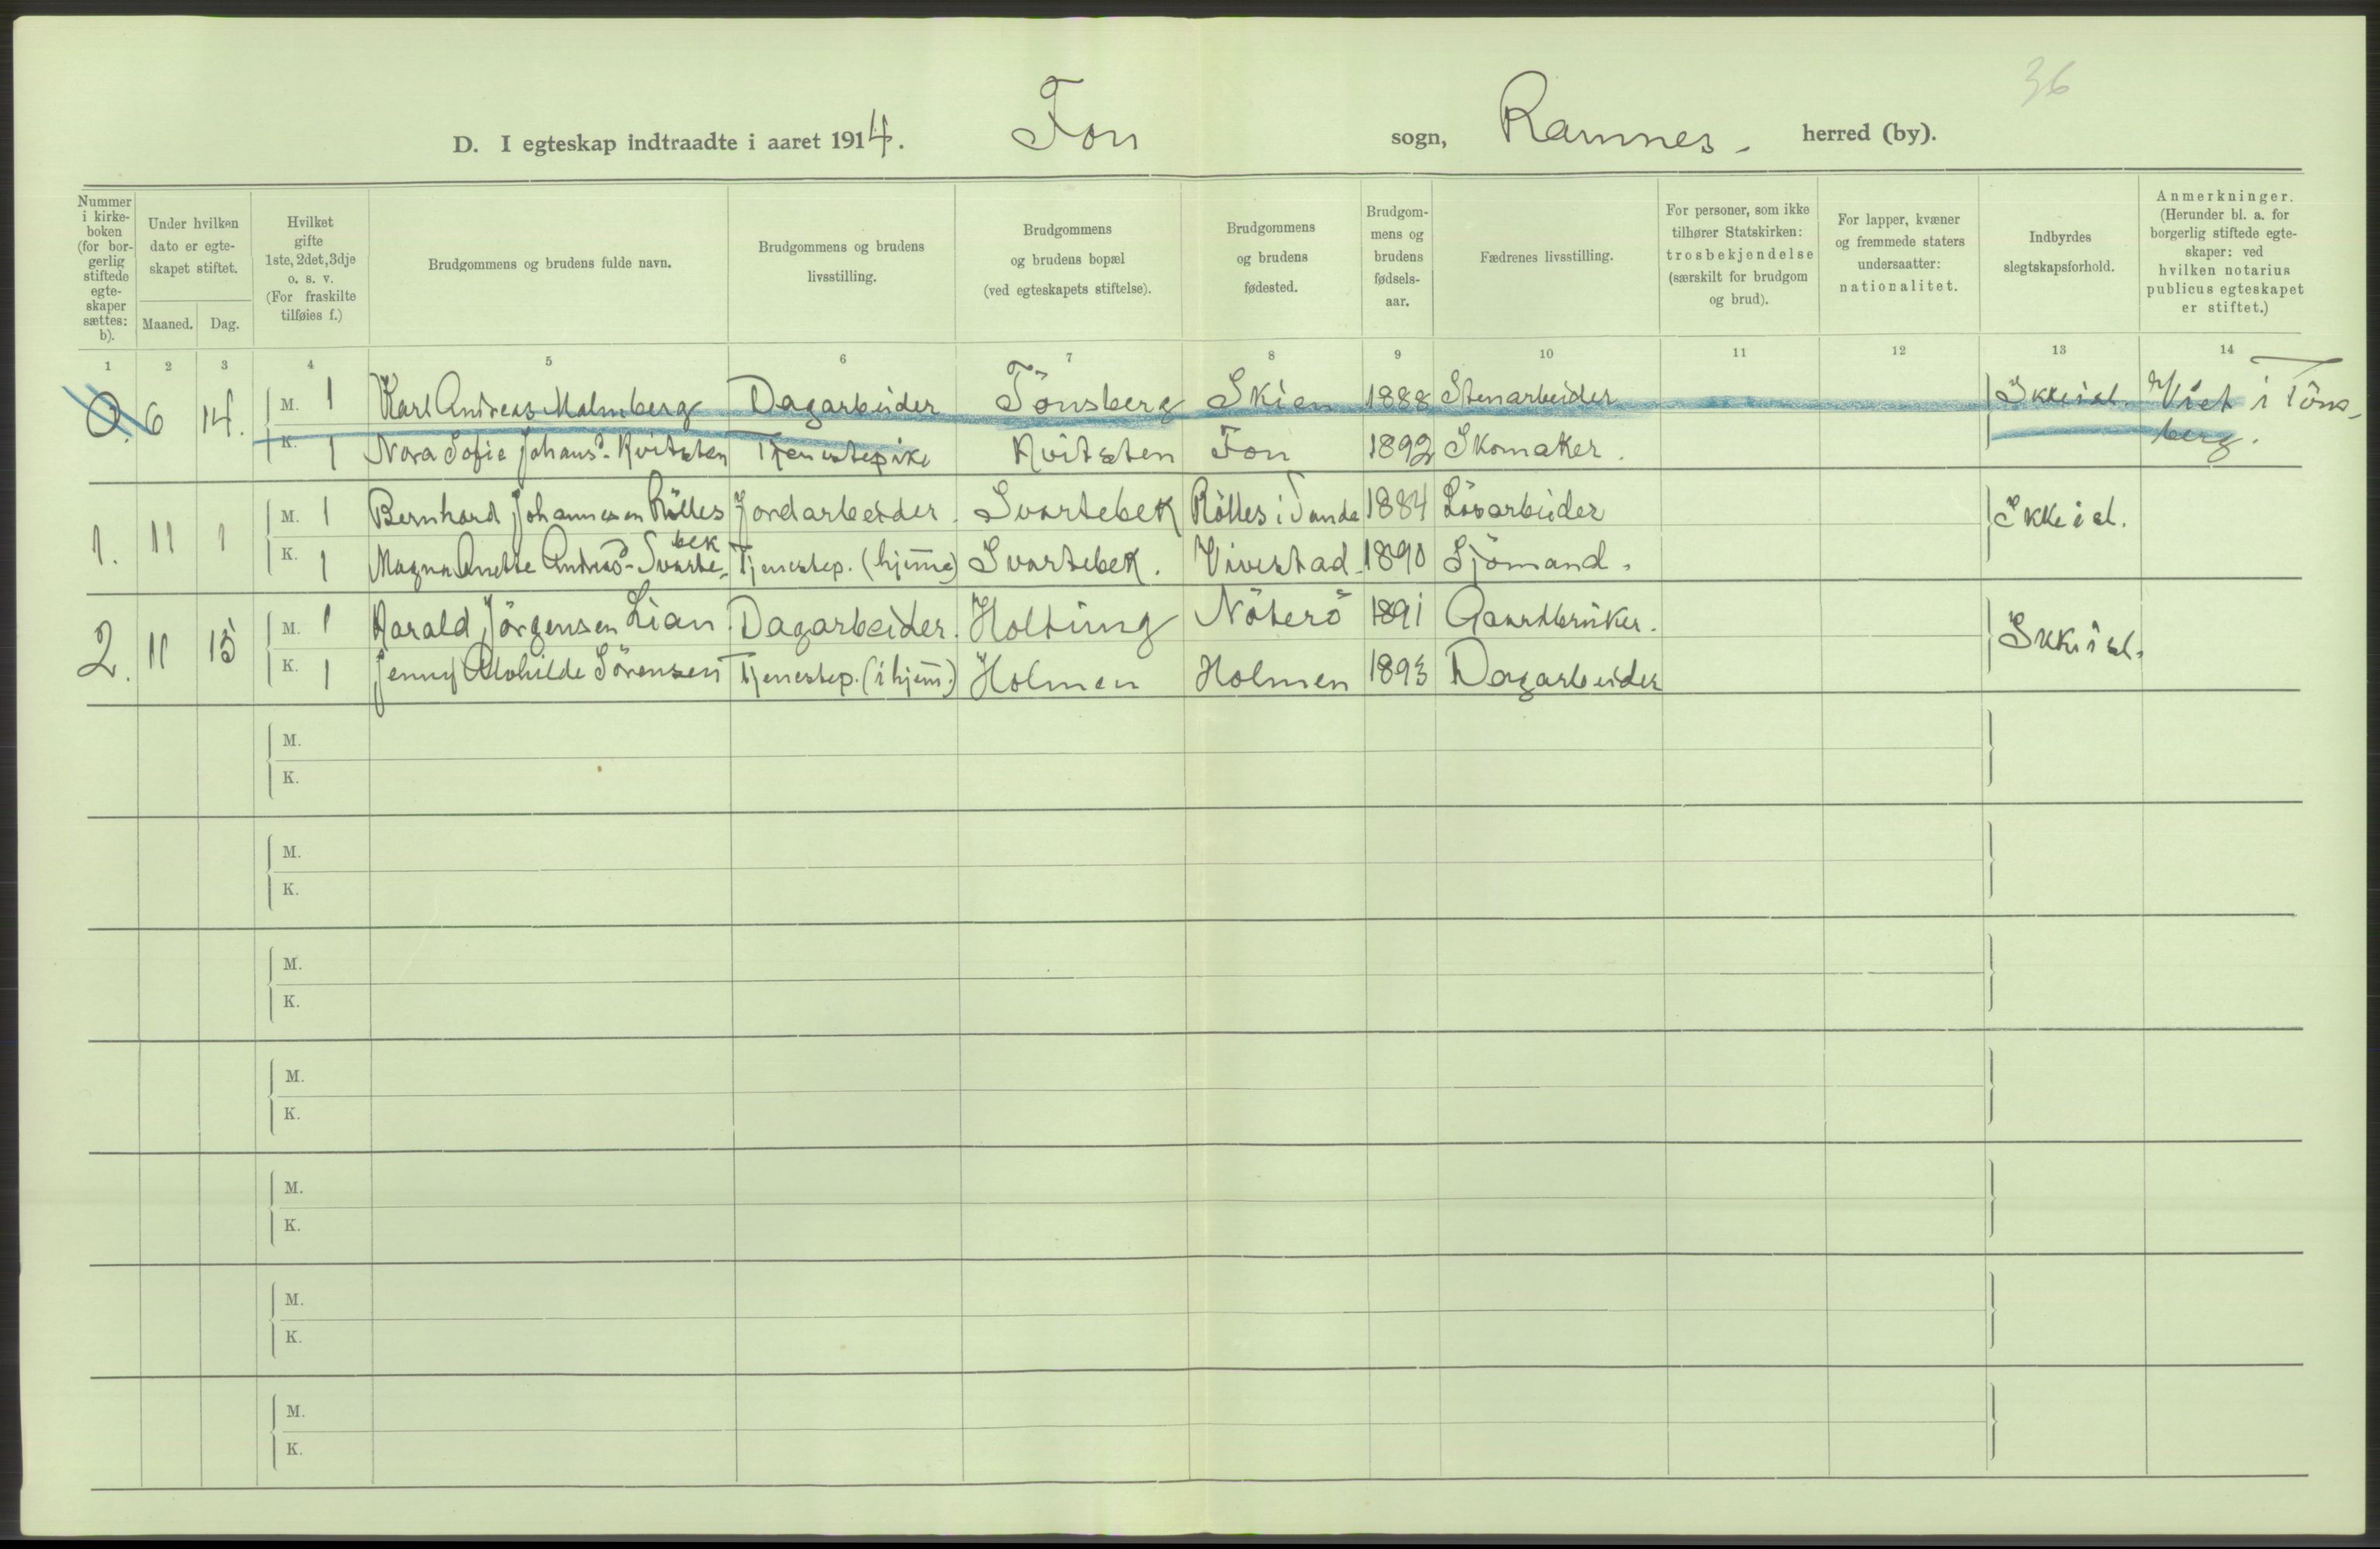 36
D. I egteskap indtraadte i aaret 1914. Fon sogn, Ramnes. herred (by).
Nummer i kirkeboken (for borgerlig stiftede egteskaper sættes: b).
Under hvilken dato er egteskapet stiftet.
Maaned. Dag.
Hvilket gifte 1ste, 2det, 3dje o. s. v. (For fraskilte tilføies f.)
Brudgommens og brudens fulde navn.
Brudgommens og brudens livsstilling.
Brudgommens og brudens bopæl (ved egteskapets stiftelse).
Brudgommens og brudens fødested.
Brudgommens og brudens fødselsaar.
Fædrenes livsstilling.
For personer, som ikke tilhører Statskirken: trosbekjendelse (særskilt for brudgom og brud).
For lapper, kvæner og fremmede staters undersaatter: nationalitet.
Indbyrdes slegtskapsforhold.
Anmerkninger. (Herunder bl. a. for borgerlig stiftede egteskaper: ved hvilken notarius publicus egteskapet er stiftet.)
1 2 3 4 5 6 7 8 9 10 11 12 13 14
0. 6 14. M. 1 Karl Andreas Malmberg Dagarbeider Tönsberg Skien 1888 Stenarbeider Ikke i sl. Viet i Töns-
K. 1 Nora Sofie Johansd. Kvitsten Tjenestepike Kvitsten Fon 1892 Skomaker. berg.
1. 11 1 M. 1 Bernhard Johannesen Rölles Jordarbeider. Svartebek Rölles i Sande 1884 Lösarbeider Ikke i sl.
K. 1 Magna Anette Andreasd. Svartebek Tjenestep. (hjemme) Svartebek. Vivestad. 1890 Sjömand.
2. 11 15 M. 1 Harald Jörgensen Lian Dagarbeider. Holtung Nöterö 1891 Gaardbruker. Ikke i sl.
K. 1 Jenny Alvhilde Sörensen Tjenestep. (i hjem.) Holmen Holmen 1893 Dagarbeider
M.
K.
M.
K.
M.
K.
M.
K.
M.
K.
M.
K.
M.
K.